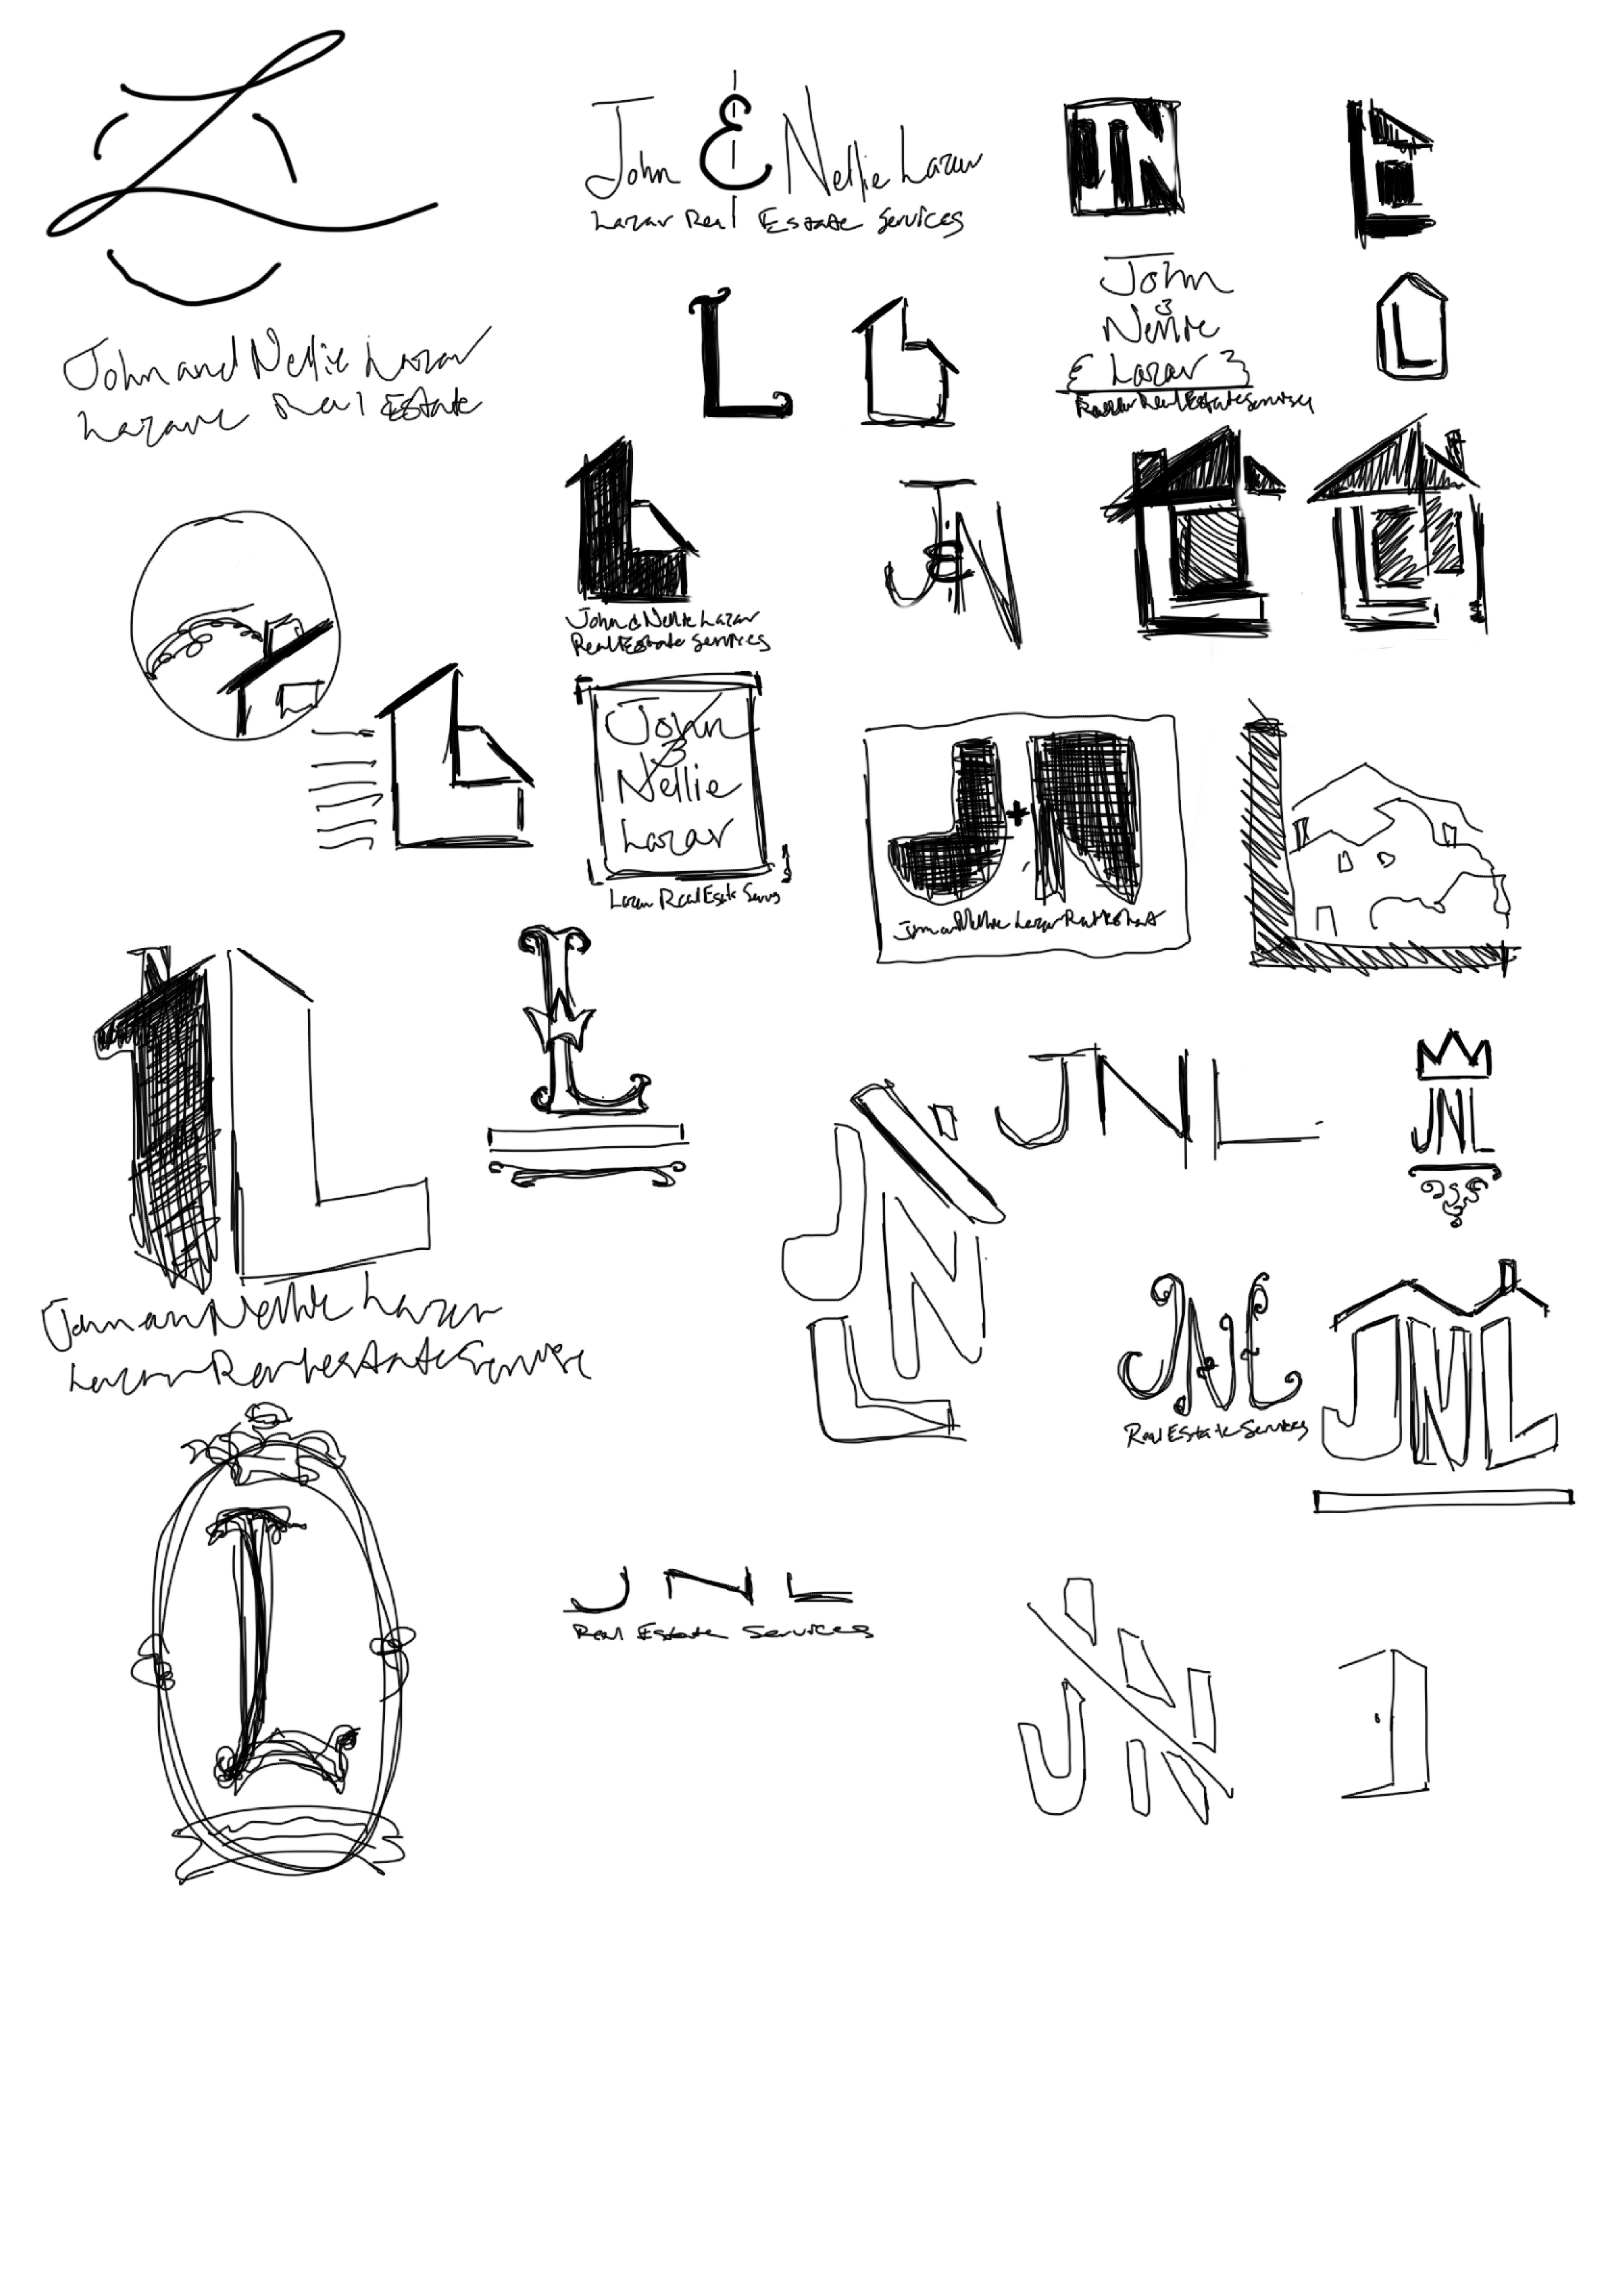 L
John and Nellie Lazar
Lazar Real Estate
John & Nellie Lazar
Lazar Real Estate Services
JN
L
L
John
&
Nellie
& Lazar
Real Estate Services
L
John & Nellie Lazar
Real Estate Services
J&N
L
John
&
Nellie
Lazar
Lazar Real Estate
J+N
John and Nellie Lazar Real Estate
L
L
John and Nellie Lazar
Lazar Real Estate Service
L
JNL
JNL
JNL
JNL
Real Estate Services
JNL
L
JNL
Real Estate Services
J